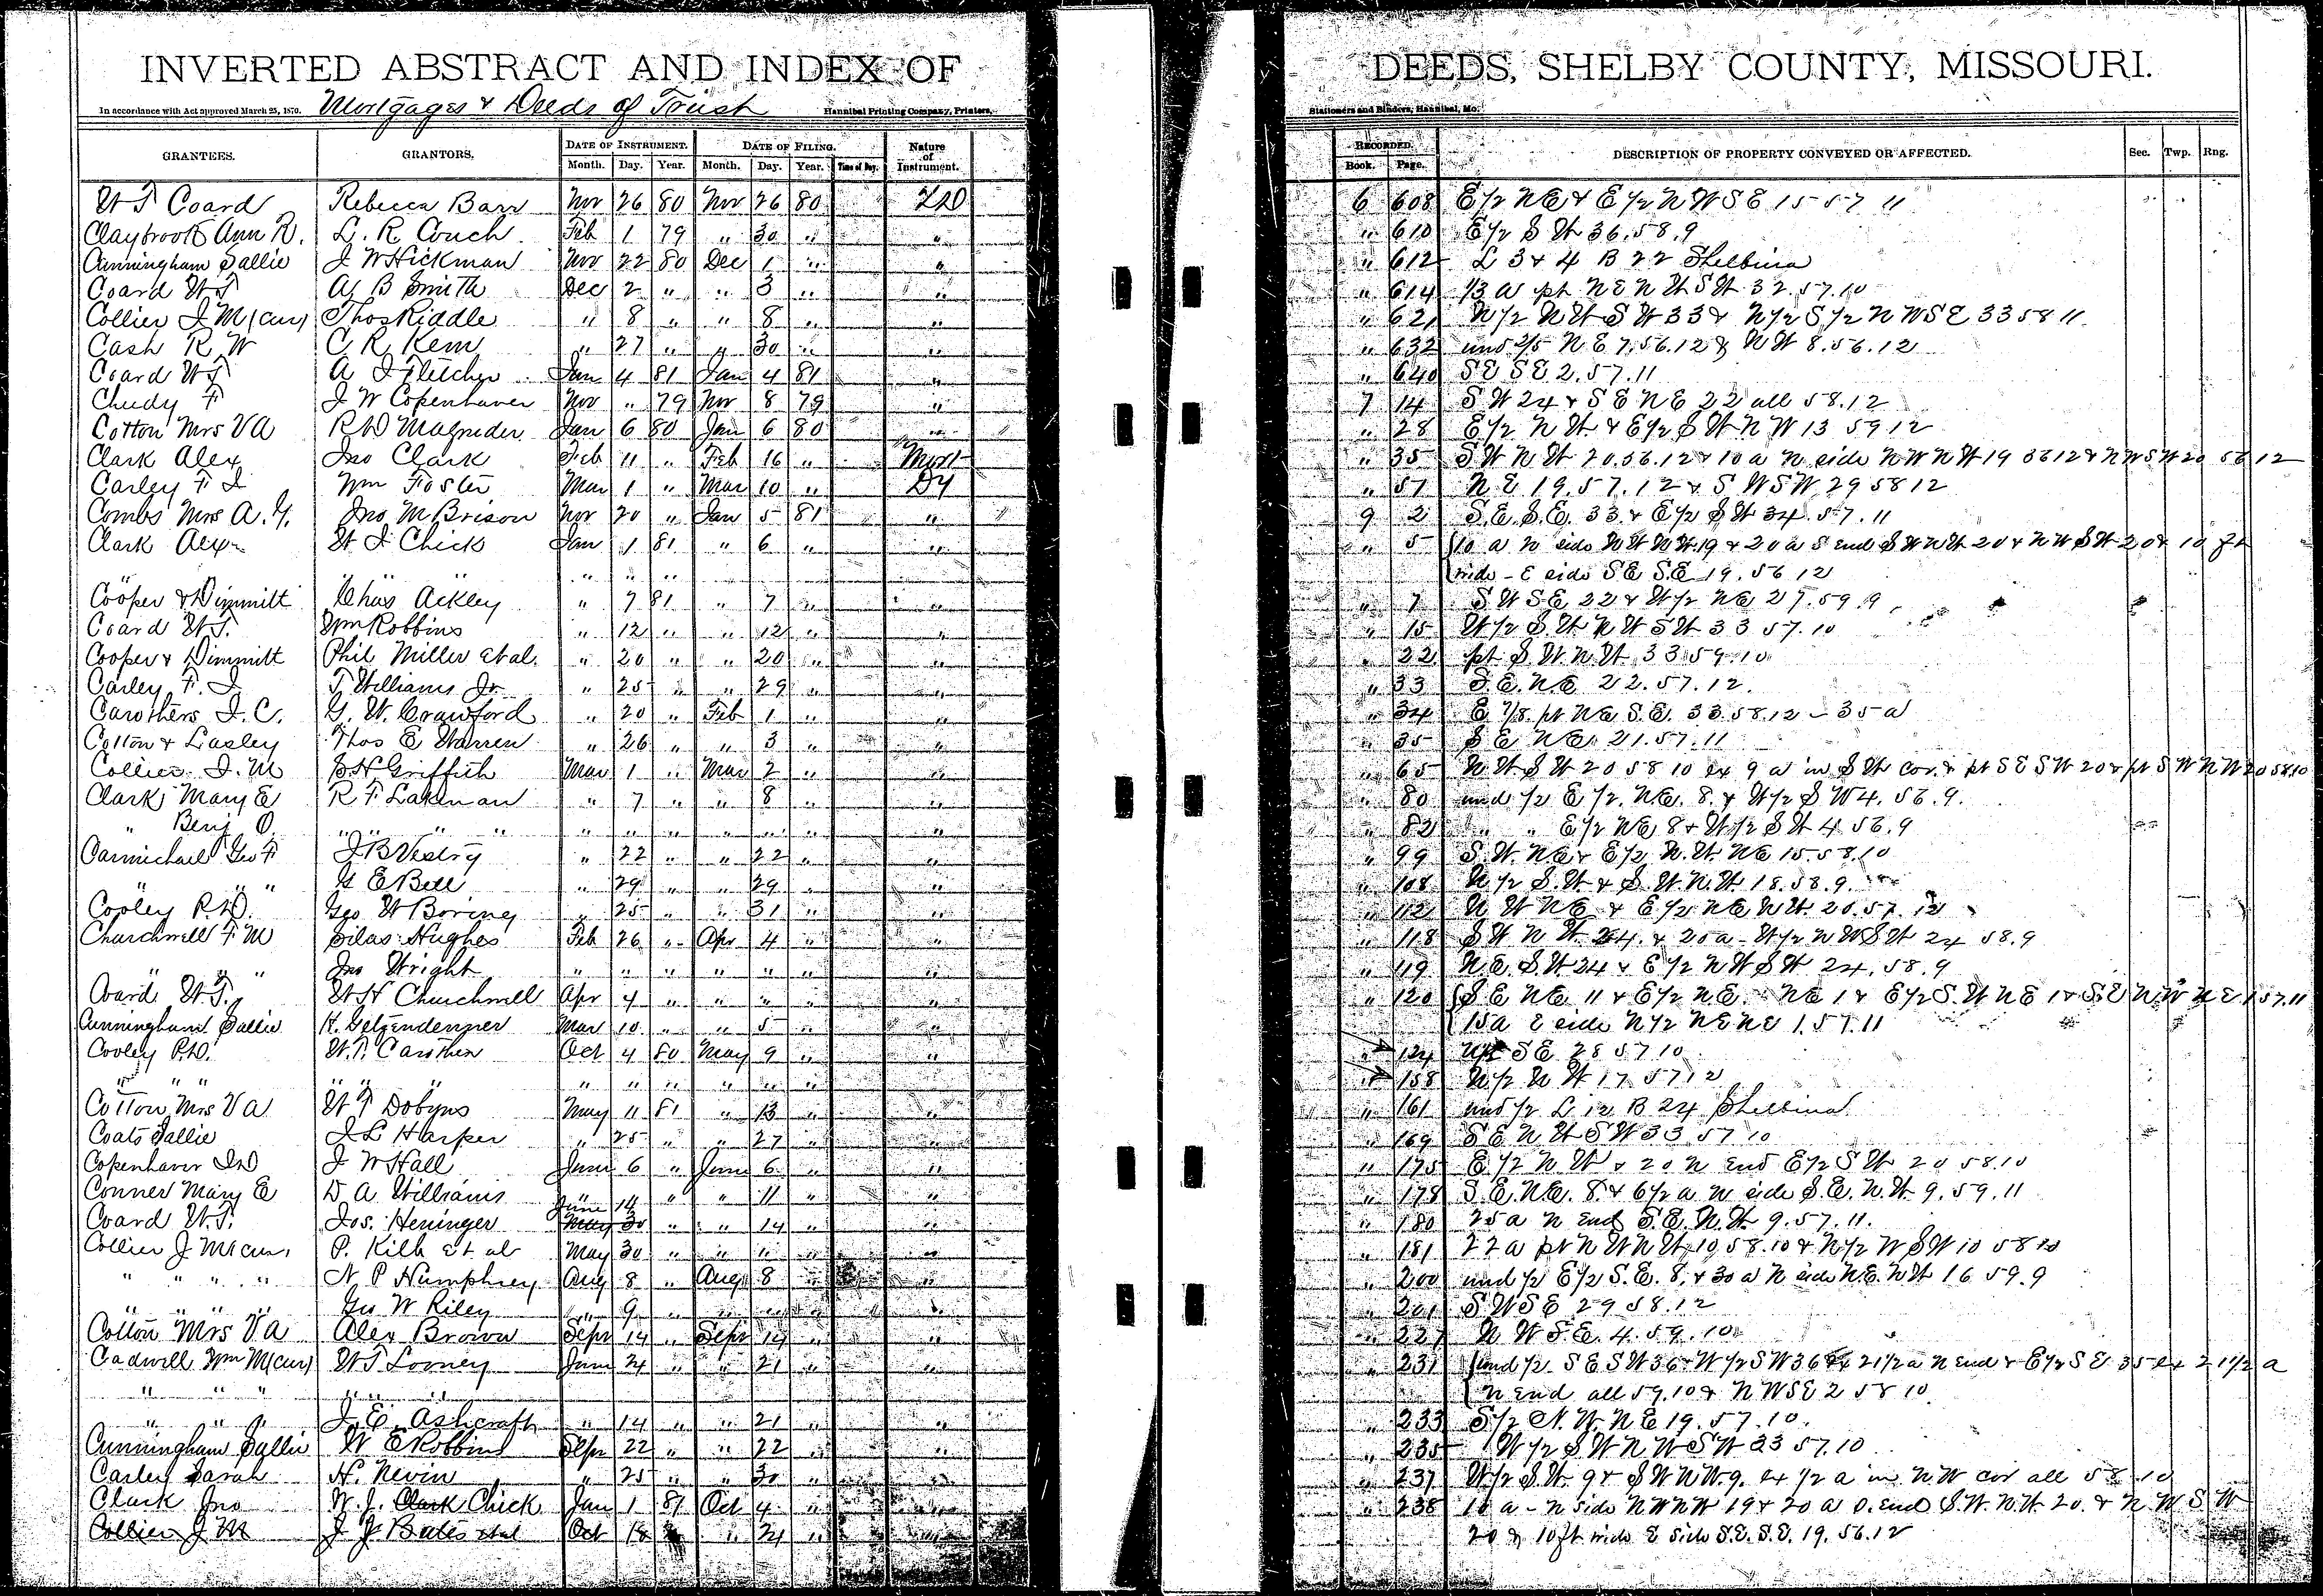 INVERTED ABSTRACT AND INDEX OF DEEDS, SHELBY COUNTY, MISSOURI.
In accordance with Act approved March 25, 1870. Mortgages & Deeds of Trust Hannibal Printing Company, Printers, Stationers and Binders, Hannibal, Mo.
GRANTEES. GRANTORS. DATE OF INSTRUMENT. DATE OF FILING. Nature of Instrument. RECORDED. DESCRIPTION OF PROPERTY CONVEYED OR AFFECTED. Sec. Twp. Rng.
Month. Day. Year. Month. Day. Year. Time of Day. Book. Page.
W T Coard Rebecca Barr Nov 26 80 Nov 26 80 6 608 E 1/2 NE & E 1/2 N W S E 15 57 11
Claybrook Ann R. L. R. Couch Feb 1 79 " 30 " " " 610 E 1/2 S W 36.58.9
Cunningham Sallie J W Hickman Nov 22 80 Dec 1 " " " 612 L 3 & 4 B 22 Shelbina
Coard W T A B Smith Dec 2 " " 3 " " " 614 13 a pt N E N W S W 32.57.10
Collier J M (cur) Thos Riddle " 8 " " 8 " " " 621 N 1/2 N W S W 33 & N 1/2 S 1/2 N W S E 33 58 11
Cash R W C R Kem " 27 " " 30 " " " 632 und 2/5 N E 7.56.12 & N W 8.56.12
Coard W T A J Fletcher Jan 4 81 Jan 4 81 " " 640 S E S E 2.57.11
Chudy F J W Copenhaver Nov " 79 Nov 8 79 " 7 14 S W 24 & S E N E 22 all 58.12
Cotton Mrs V A R D Magruder Jan 6 80 Jan 6 80 " " 28 E 1/2 N W & E 1/2 S W N W 13 59 12
Clark Alex Jno Clark Feb 11 " Feb 16 " Mort " 35 S W N W 20.56.12 & 10 a N side N W N W 19 56 12 & N W S W 20 56 12
Carley F J Wm Foster Mar 1 " Mar 10 " DT " 57 N E 19.57.12 & S W S W 29 58 12
Combs Mrs A. Y. Jno M Brison Nov 20 " Jan 5 81 " 9 2 S.E. S.E. 33 & E 1/2 S W 34.57.11
Clark Alex W J Chick Jan 1 81 " 6 " " " 5 10 a N side N W N W 19 & 20 a S end S W N W 20 & N W S W 20 & 10 ft
" " " " " " wide - E side S E S.E 19.56 12
Cooper & Dimmitt Chas Ackley " 7 81 " 7 " " " 7 S W S E 22 & W 1/2 N E 27.59.9
Coard W T. Wm Robbins " 12 " " 12 " " " 15 W 1/2 S.W. N W S W 33 57.10
Cooper & Dimmitt Phil Miller et al. " 20 " " 20 " " " 22 pt S.W N.W. 33.59.10
Carley F. J. T Williams Jr. " 25 " " 29 " " " 33 S.E. N.E 22.57.12.
Carothers J. C. G. W. Crawford " 20 " Feb 1 " " " 34 E 7/8 pt N E S.E. 33.58.12 - 35 a
Cotton & Lasley Thos E Warren " 26 " " 3 " " " 35 S E N E 21.57.11
Collier J. M S H Griffith Mar 1 " Mar 2 " " " 65 N W S W 20 58 10 ex 9 a in S W cor. & pt S E S W 20 & pt S W N W 20 58 10
Clark Mary E R F Lakenan " 7 " " 8 " " " 80 und 1/2 E 1/2 N E. 8. & W 1/2 S W 4.56.9.
" Benj O. " " " " " " " " " " " 82 " " E 1/2 N E 8 & W 1/2 S W 4 56.9
Carmichael Geo F J B Vestry " 22 " " 22 " " " 99 S.W. N E & E 1/2 N.W. N E 15.58.10
" " " G E Bell " 29 " " 29 " " " 108 N 1/2 S.W & S.W. N.W 18.58.9.
Cooley P. D. Geo W Boring " 25 " " 31 " " " 112 N W N E & E 1/2 N E N W. 20.57.12
Churchwell F M Silas Hughes Feb 26 " Apr 4 " " " 118 S W N W 24. & 25 a - W 1/2 N W S W 24 58.9
" " " Jno Wright " " " " " " " " 119 N.E. S W 24 & E 1/2 N W S W 24.58.9
Coard W. T. W H Churchwell Apr 4 " " " " " " 120 S E N E 11 & E 1/2 N E. N E 1 & E 1/2 S.W N E 1 & S.E N.W N E 1 57.11
Cunningham Sallie H. Getzendenner Mar 10 " " 5 " " 15 a E side N 1/2 N E N E 1.57.11
Cooley P. D. W. T. Carothen Oct 4 80 May 9 " " " 124 S E 28 57 10
" " " " " " " " " " " " " " 158 N 1/2 N W 17 57 12
Cotton Mrs V A W T Dobyns May 11 81 " 13 " " " 161 und 1/2 L 12 B 24 Shelbina
Coats Sallie J L Harper " 25 " " 27 " " " 169 S E N W S W 33 57 10
Copenhaver J D J W Hall June 6 " June 6 " " " 175 E 1/2 N W & 20 N end E 1/2 S W 20 58.10
Conner Mary E D A Williams " " " 11 " " " 178 S.E. N.E. 8. & 6 1/2 a N side S.E. N.W. 9.59.11
Coard W. T. Jos. Heninger June 14 May 30 " " 14 " " " 180 25 a N end S.E. N.W. 9.57.11.
Collier J M (cur) P. Kilb et al May 30 " " " " " " 181 22 a pt N W N W 10 58.10 & N 1/2 W S W 10 58 10
" " " " N P Humphrey Aug 8 " Aug 8 " " " 200 und 1/2 E 1/2 S.E. 8. & 30 a N side N.E. N W 16 59.9
" " " " Geo W Riley " 9 " " " " " " 201 S W S E 29 58.12
Cotton Mrs V A Alex Brown Sepr 14 " Sepr 14 " " " 227 N W S.E. 4.59.10
Cadwell Wm M (cur) W T Looney June 24 " " 21 " " " 231 und 1/2 S E S W 36 & W 1/2 S W 36 ex 21 1/2 a N end & E 1/2 S E 35 ex 21 1/2 a
" " " " " " N end all 59.10 & N W S E 2 58 10
" " " J. E. Ashcraft " 14 " " 21 " " " 233 S 1/2 N. W. N E 19.57.10.
Cunningham Sallie W E Robbins Sepr 22 " " 22 " " " 235 W 1/2 S W N W S W 23 57.10
Carley Sarah H. Nevin " 25 " " 30 " " " 237 W 1/2 S.W. 9 & S W N W 9. ex 1/2 a in N W cor all 58 10
Clark Jno W. J. Clark Chick Jan 1 81 Oct 4 " " " 238 10 a - N side N W N W 19 & 20 a S. end S.W. N.W. 20. & N W S W
Collier J M J J Bates et al Oct 18 " 24 " " 20 & 10 ft wide E side S.E. S.E. 19.56.12